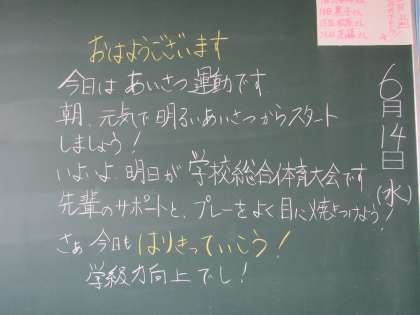 おはようございます
今日は あいさつ運動です
朝、元気で明るいあいさつからスタート
しましょう!
いよいよ、明日が 学校総合体育大会です
先輩のサポートと、プレーをよく目に焼きつけよう!
さぁ 今日も はりきっていこう!
学級力向上でし!
6月14日(水)